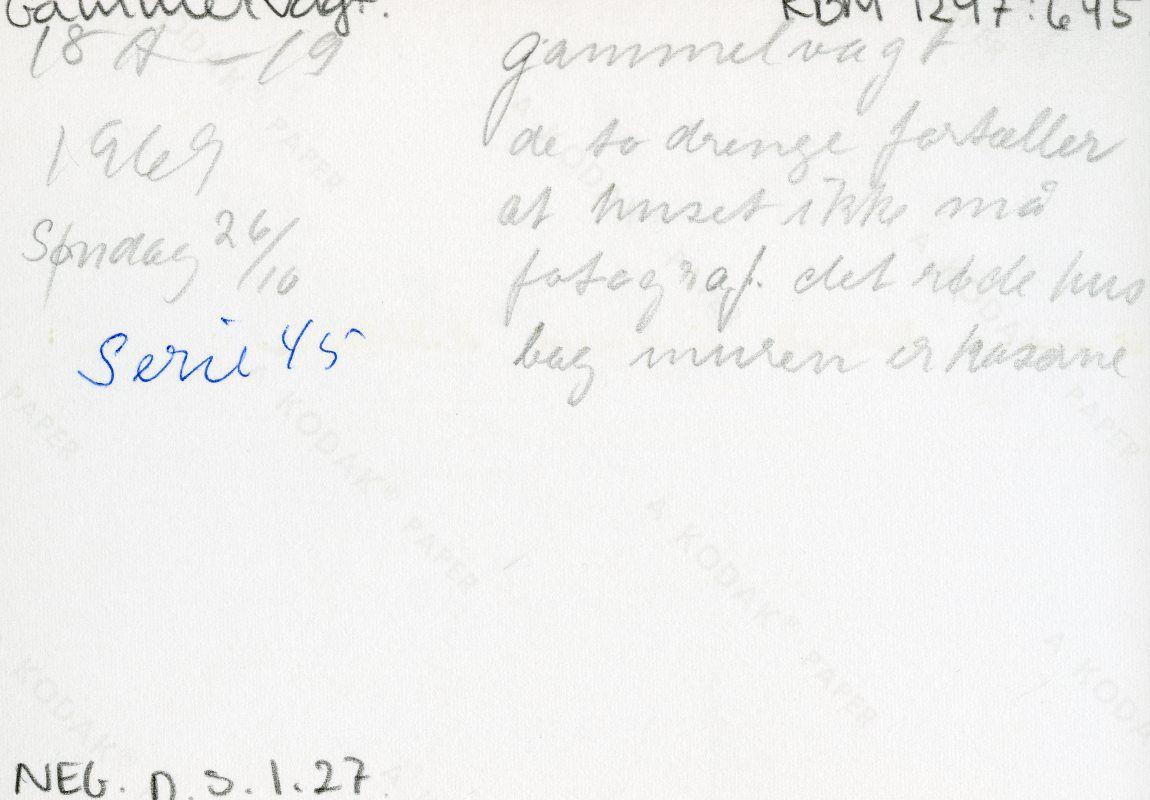 Gammelvagt.
KBM 1297:645
18 A – 19
1969
Søndag 26/10
Serie 45
gammelvagt
de to drenge fortæller
at huset ikke må
fotograf. det røde hus
bag muren er kaserne
NEG. D. S. 1. 27
A KODAK® PAPER